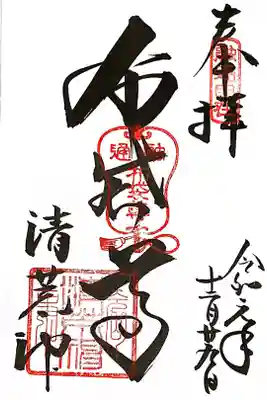 奉拝
令和元年
十二月廿九日
布袋尊
融通
清荒神